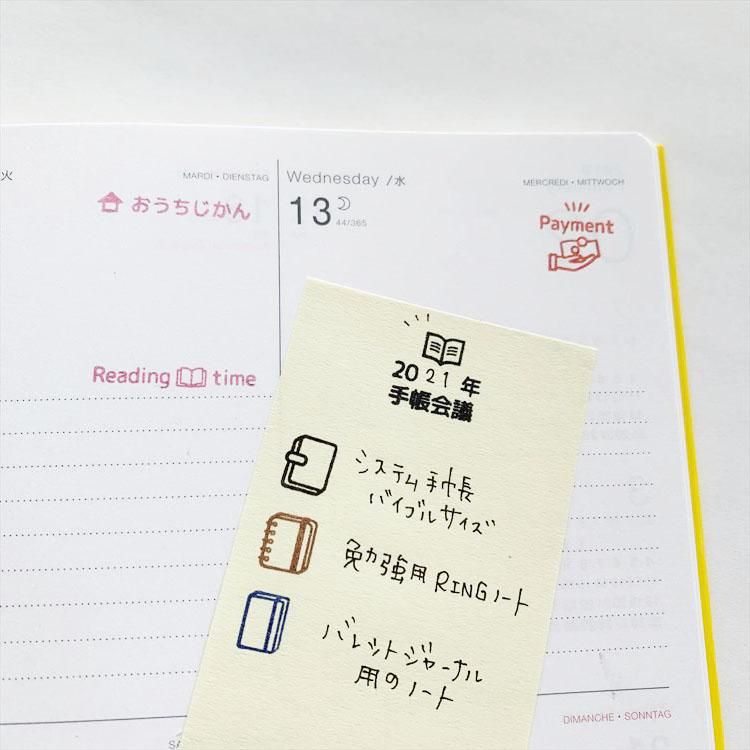 火
MARDI・DIENSTAG
おうちじかん
Reading time
Wednesday /水
MERCREDI・MITTWOCH
13
44/365
Payment
2021年
手帳会議
システム手帳
バイブルサイズ
勉強用RINGノート
バレットジャーナル
用のノート
DIMANCHE・SONNTAG